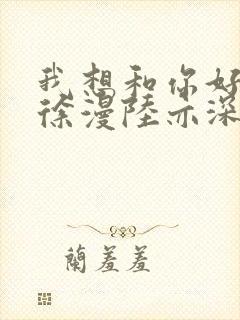 我想和你好
徐漫陸亦深
蘭羞羞